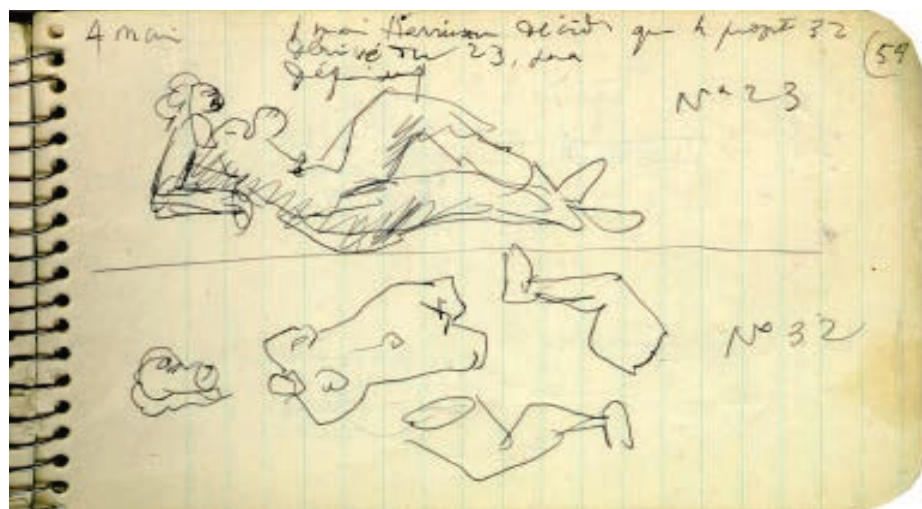 4 mai
4 mai Harrison décide que le projet 32
dérivé du 23, sera
définitif
59
N° 23
N° 32